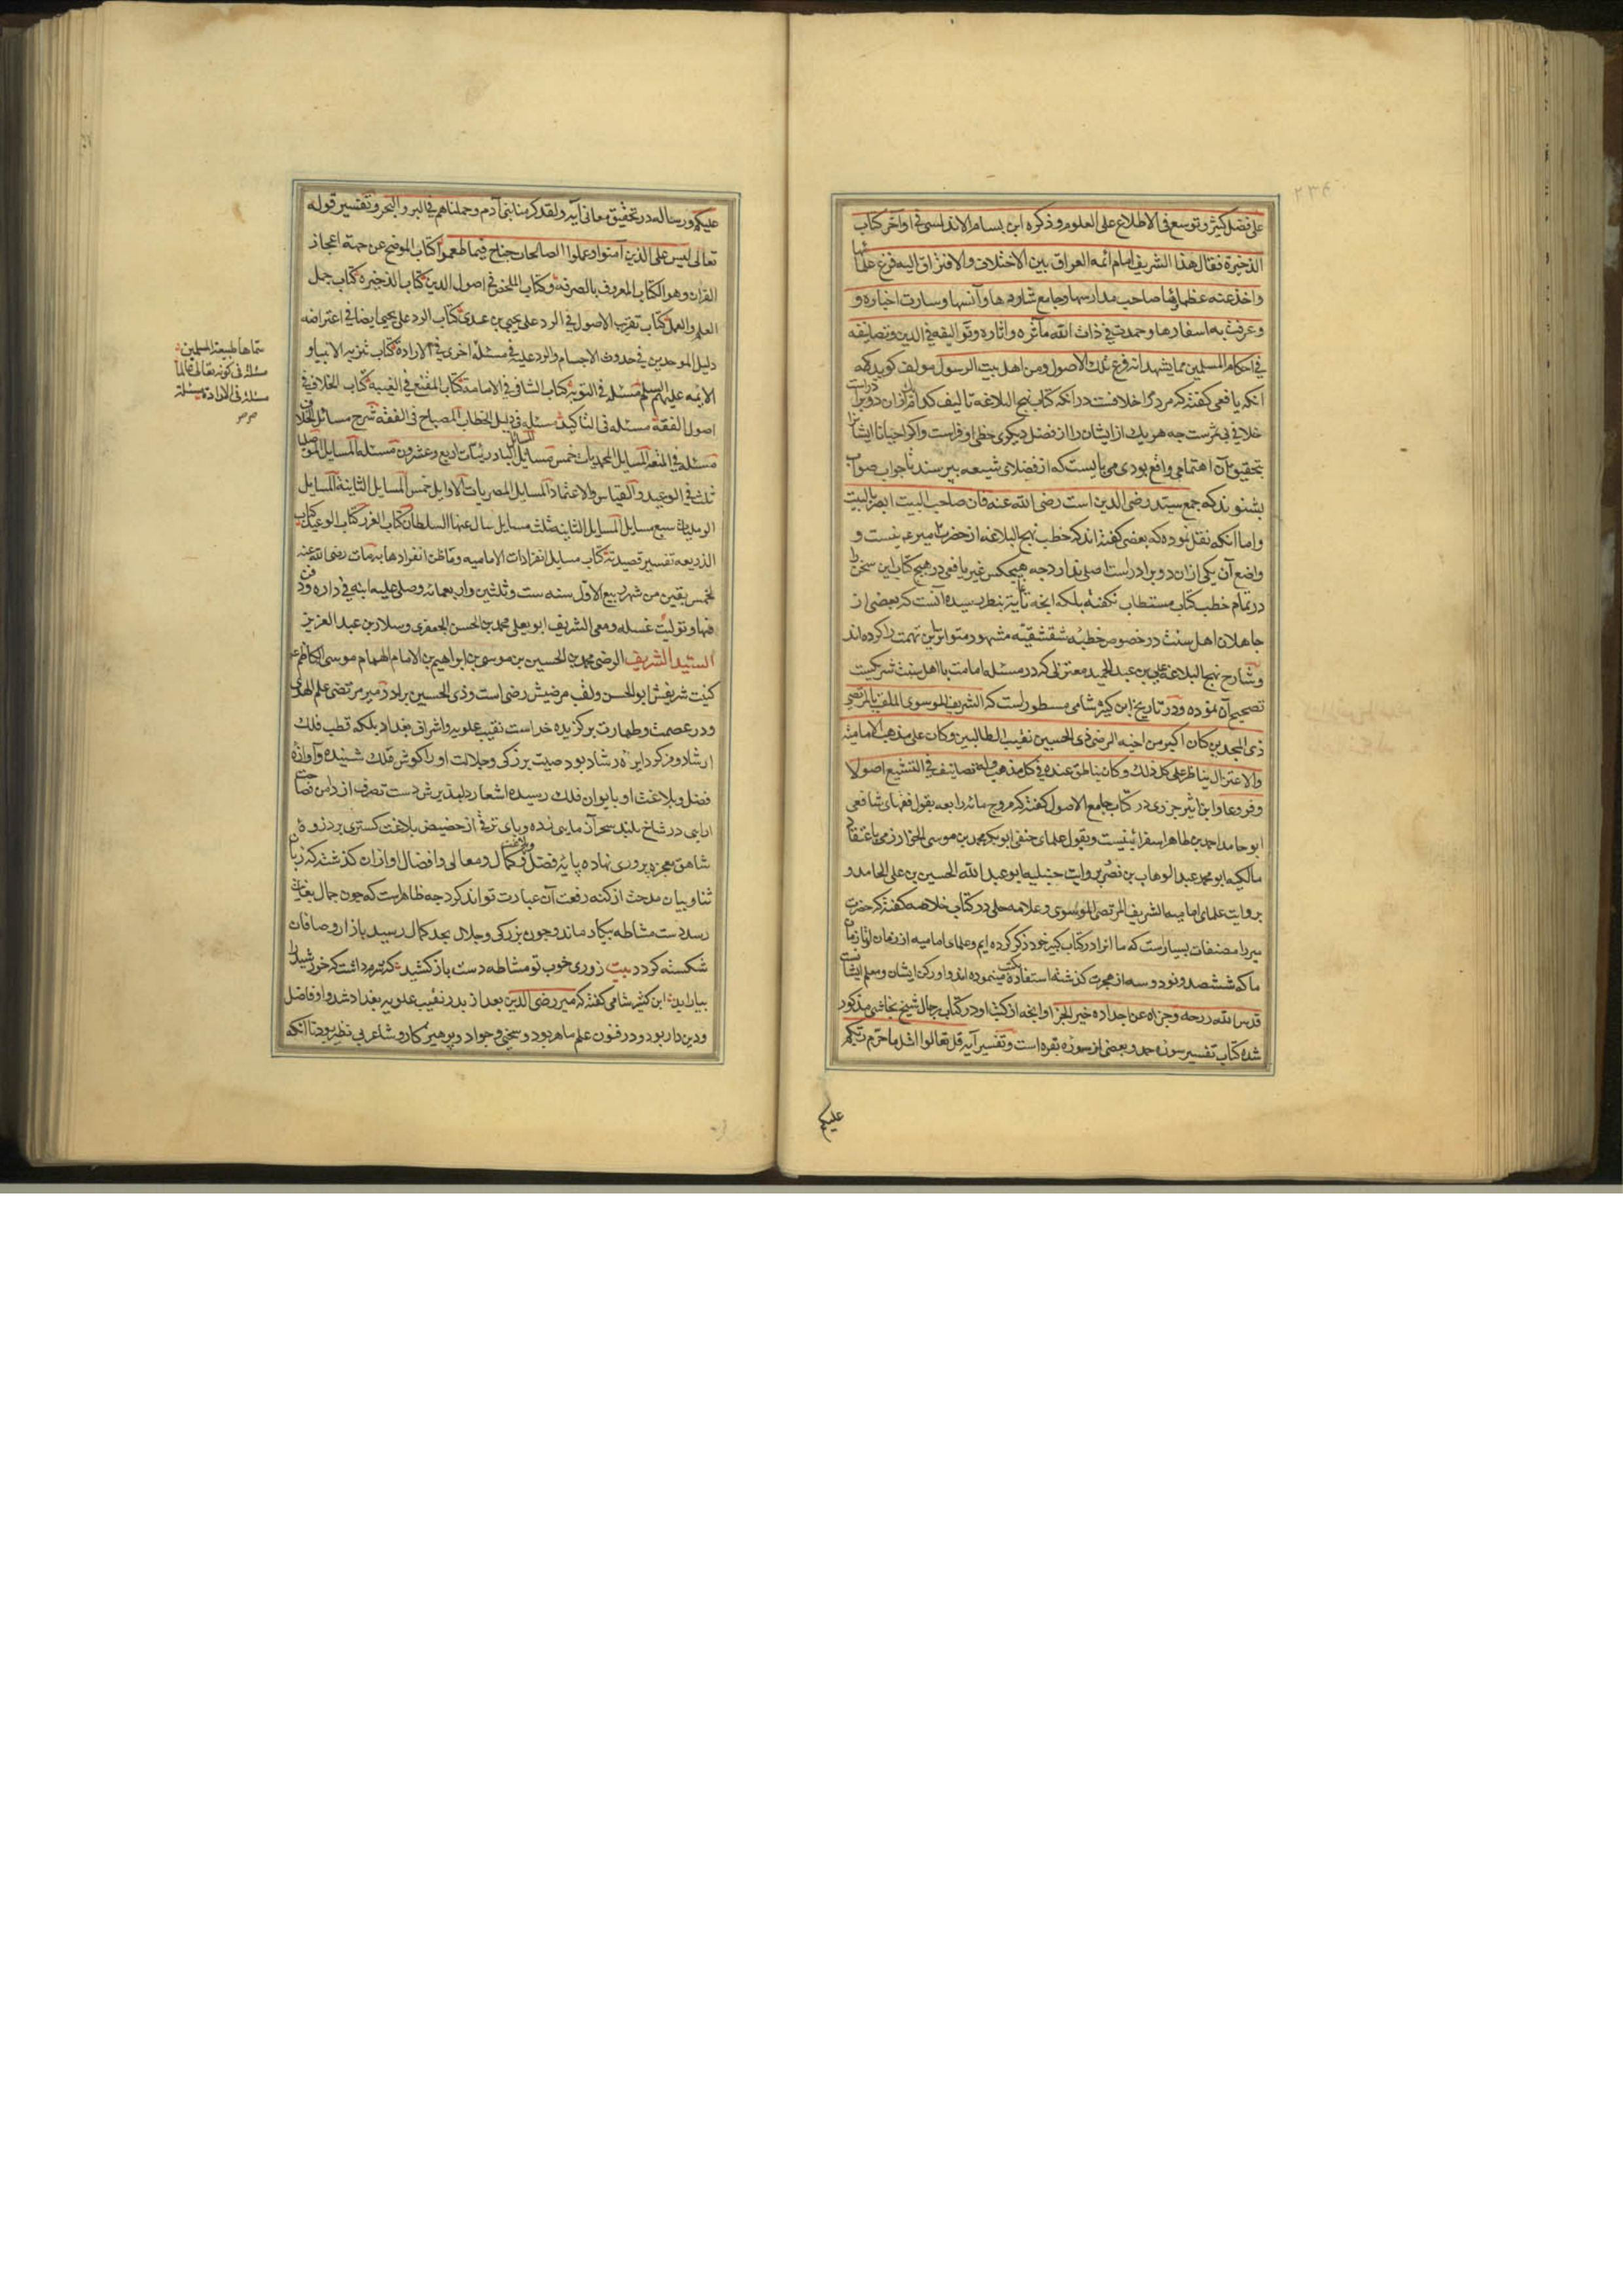 ۲۳۴
علی فضل کثیر و توسع فی الاطلاع علی العلوم و ذکره ابن بسام الاندلسی فی اواخر کتاب
الذخیرة فقال هذا الشریف امام ائمه العراق بین الاختلاف والافتراق الیه فزع علمائها
واخذ عنه عظمائها صاحب مدارسها و جامع شاردها وآنسها و سارت اخباره و
و عرفت به اسفارها و حمدت فی ذات الله مآثره و اثاره و توالیفه فی الدین و تصانیفه
فی احکام المسلمین مما یشهد انه فرع تلک الاصول و من اهل بیت الرسول مولف کوید که
آنکه یافعی کفته که مردم را خلافست در آنکه کتاب نهج البلاغه تالیف کدام از آن دو برادراست
خلافی بی ثمرست چه هر یک از ایشان را از فضل دیکری حظی اوفر است و اکر احیانا ایشانرا
بتحقیق آن اهتمامی واقع بودی می بایست که از فضلای شیعه بپرسند تا جواب صواب
بشنوند که جمع سید رضی الدین است رضی الله عنه فان صاحب البیت ابصر بالبیت
و اما آنکه نقل نموده که بعضی کفته اند که خطب نهج البلاغه از حضرت امیر ع نیست و
واضع آن یکی از ان دو برادراست اصلی ندارد چه هیچکس غیر یافعی در هیچ کتاب این سخن را
در تمام خطب کتاب مستطاب نکفته بلکه آنچه بنظر رسیده آنست که بعضی از
جاهلان اهل سنت در خصوص خطبه شقشقیه مشهور متواتر این تهمت را کرده اند
و شارح نهج البلاغه علی بن عبد الحمید معتزلی که در مسئله امامت با اهل سنت شریکست
تصحیح آن نموده و در تاریخ ابن کثیر شامی مسطوراست که الشریف الموسوی الملقب بالمرتضی
ذی المجدین کان اکبر من اخیه الرضی ذی الحسبین نقیب الطالبین و کان علی مذهب الامامیه
والاعتزال یناظر علی کل ذلک و کان یناظر عنده فی کل مذهب وله تصانیف فی التشیع اصولا
و فروعا و ابن اثیر جزری در کتاب جامع الاصول کفته که مروج مائه رابعه بقول فقهای شافعی
ابو حامد احمد بن طاهر اسفرائینیست و بقول علمای حنفی ابو بکر محمد بن موسی الخوارزمی باعتقاد
مالکیه ابو محمد عبد الوهاب بن نصر بروایت حنبلیه ابو عبد الله الحسین بن علی الحامد و
بروایت علمای امامیه الشریف المرتضی الموسوی و علامه حلی در کتاب خلاصه کفته که حضرت
میر را مصنفات بسیار است که ما انرا در کتاب کبیر خود ذکر کرده ایم و علمای امامیه از زمان او تا زمان
ما که ششصد و نود و سه از هجرت کذشته استفاده کتب مینموده اند و او رکن ایشان و معلم ایشانست
قدس الله روحه و جزاه عن اجداده خیر الجزا و آنچه از کتب او در کتاب رجال شیخ نجاشی مذکور
شده کتاب تفسیر سوره حمد و بعضی از سوره بقره است و تفسیر آیه قل تعالوا اتل ما حرم ربکم
علیکم
علیکم و رساله در تحقیق معانی آیه ولقد کرمنا بنی آدم و حملناهم فی البر والبحر و تفسیر قوله
تعالی لیس علی الذین آمنوا و عملوا الصالحات جناح فیما طعموا کتاب الموضح عن جهة اعجاز
القران وهو الکتاب المعروف بالصرفه و کتاب الملخص فی اصول الدین کتاب الذخیره کتاب جمل
العلم والعمل کتاب تقریب الاصول فی الرد علی یحیی بن عدی کتاب الرد علی یحیی ایضا فی اعتراضه
دلیل الموحدین فی حدوث الاجسام والرد علیه فی مسئلة اخری فی الارادة کتاب تنزیه الانبیا و
الائمه علیهم السلم مسئله فی التوبه کتاب الشافی فی الامامة کتاب المقنع فی الغیبه کتاب الخلاف فی
اصول الفقه مسئله فی التاکید مسئله فی دلیل الخطاب المصباح فی الفقه شرح مسائل الخلاف
مسئله فی المتعه المسایل المحمدیات خمس مسایل المسائل البادرئیات اربع و عشرون مسئله المسایل الموصلیات
ثلث فی الوعید والقیاس والاعتماد المسایل المصریات الاوایل خمس المسایل الثانیة المسایل
الرملیات سبع مسایل المسایل الثانیه ثلث مسایل سال عنها السلطان کتاب الغرر کتاب الوعید کتاب
الذریعه تفسیر قصیدته کتاب مسایل انفرادات الامامیه وماظن انفرادها به مات رضی الله عنه
لخمس بقین من شهر ربیع الاول سنه ست و ثلثین واربعمائه وصلی علیه ابنه فی داره ودفن
فیها و تولیت غسله و معی الشریف ابو یعلی محمد بن الحسن الجعفری و سلار بن عبد العزیز
السید الشریف الرضی محمد بن الحسین بن موسی بن ابراهیم بن الامام الهمام موسی الکاظم ع
کنیت شریفش ابو الحسن ولقب مرضیش رضی است وذی الحسبین برادر میر مرتضی علم الهدی
و در عصمت و طهارت برکزیده خداست نقیب علویه و اشراف بغداد بلکه قطب فلک
ارشاد و مرکز دایره رشاد بود صیت بزرکی و جلالت او را کوش فلک شنیده و آوازه
فضل و بلاغت او بایوان فلک رسیده اشعار دلپذیرش دست تصرف از دامن فصاحت
شاهق معجزه پروری نهاده پایه فضل و کمال و معالی و افضال او از ان کذشته که زبان
ثنا و بیان مدحت از کنه رفعت آن عبارت تواند کرد چه ظاهرست که چون جمال بغایت
رسد دست مشاطه بیکار ماند و چون بزرکی و جلال بحد کمال رسید بازار وصافان
شکسته کردد بیت ز روی خوب تو مشاطه دست باز کشید که شرم داشت که خورشید را
بیاراید ابن کثیر شامی کفته که میر رضی الدین بعد از پدر نقیب علویه بغداد شد و او فاضل
و دین دار بود و در فنون علم ماهر بود و سخی و جواد و پرهیزکار و شاعر بی نظیر بود تا آنکه
مسئله فی کونه تعالی عالما
مسئله فی الارادة مسئلة